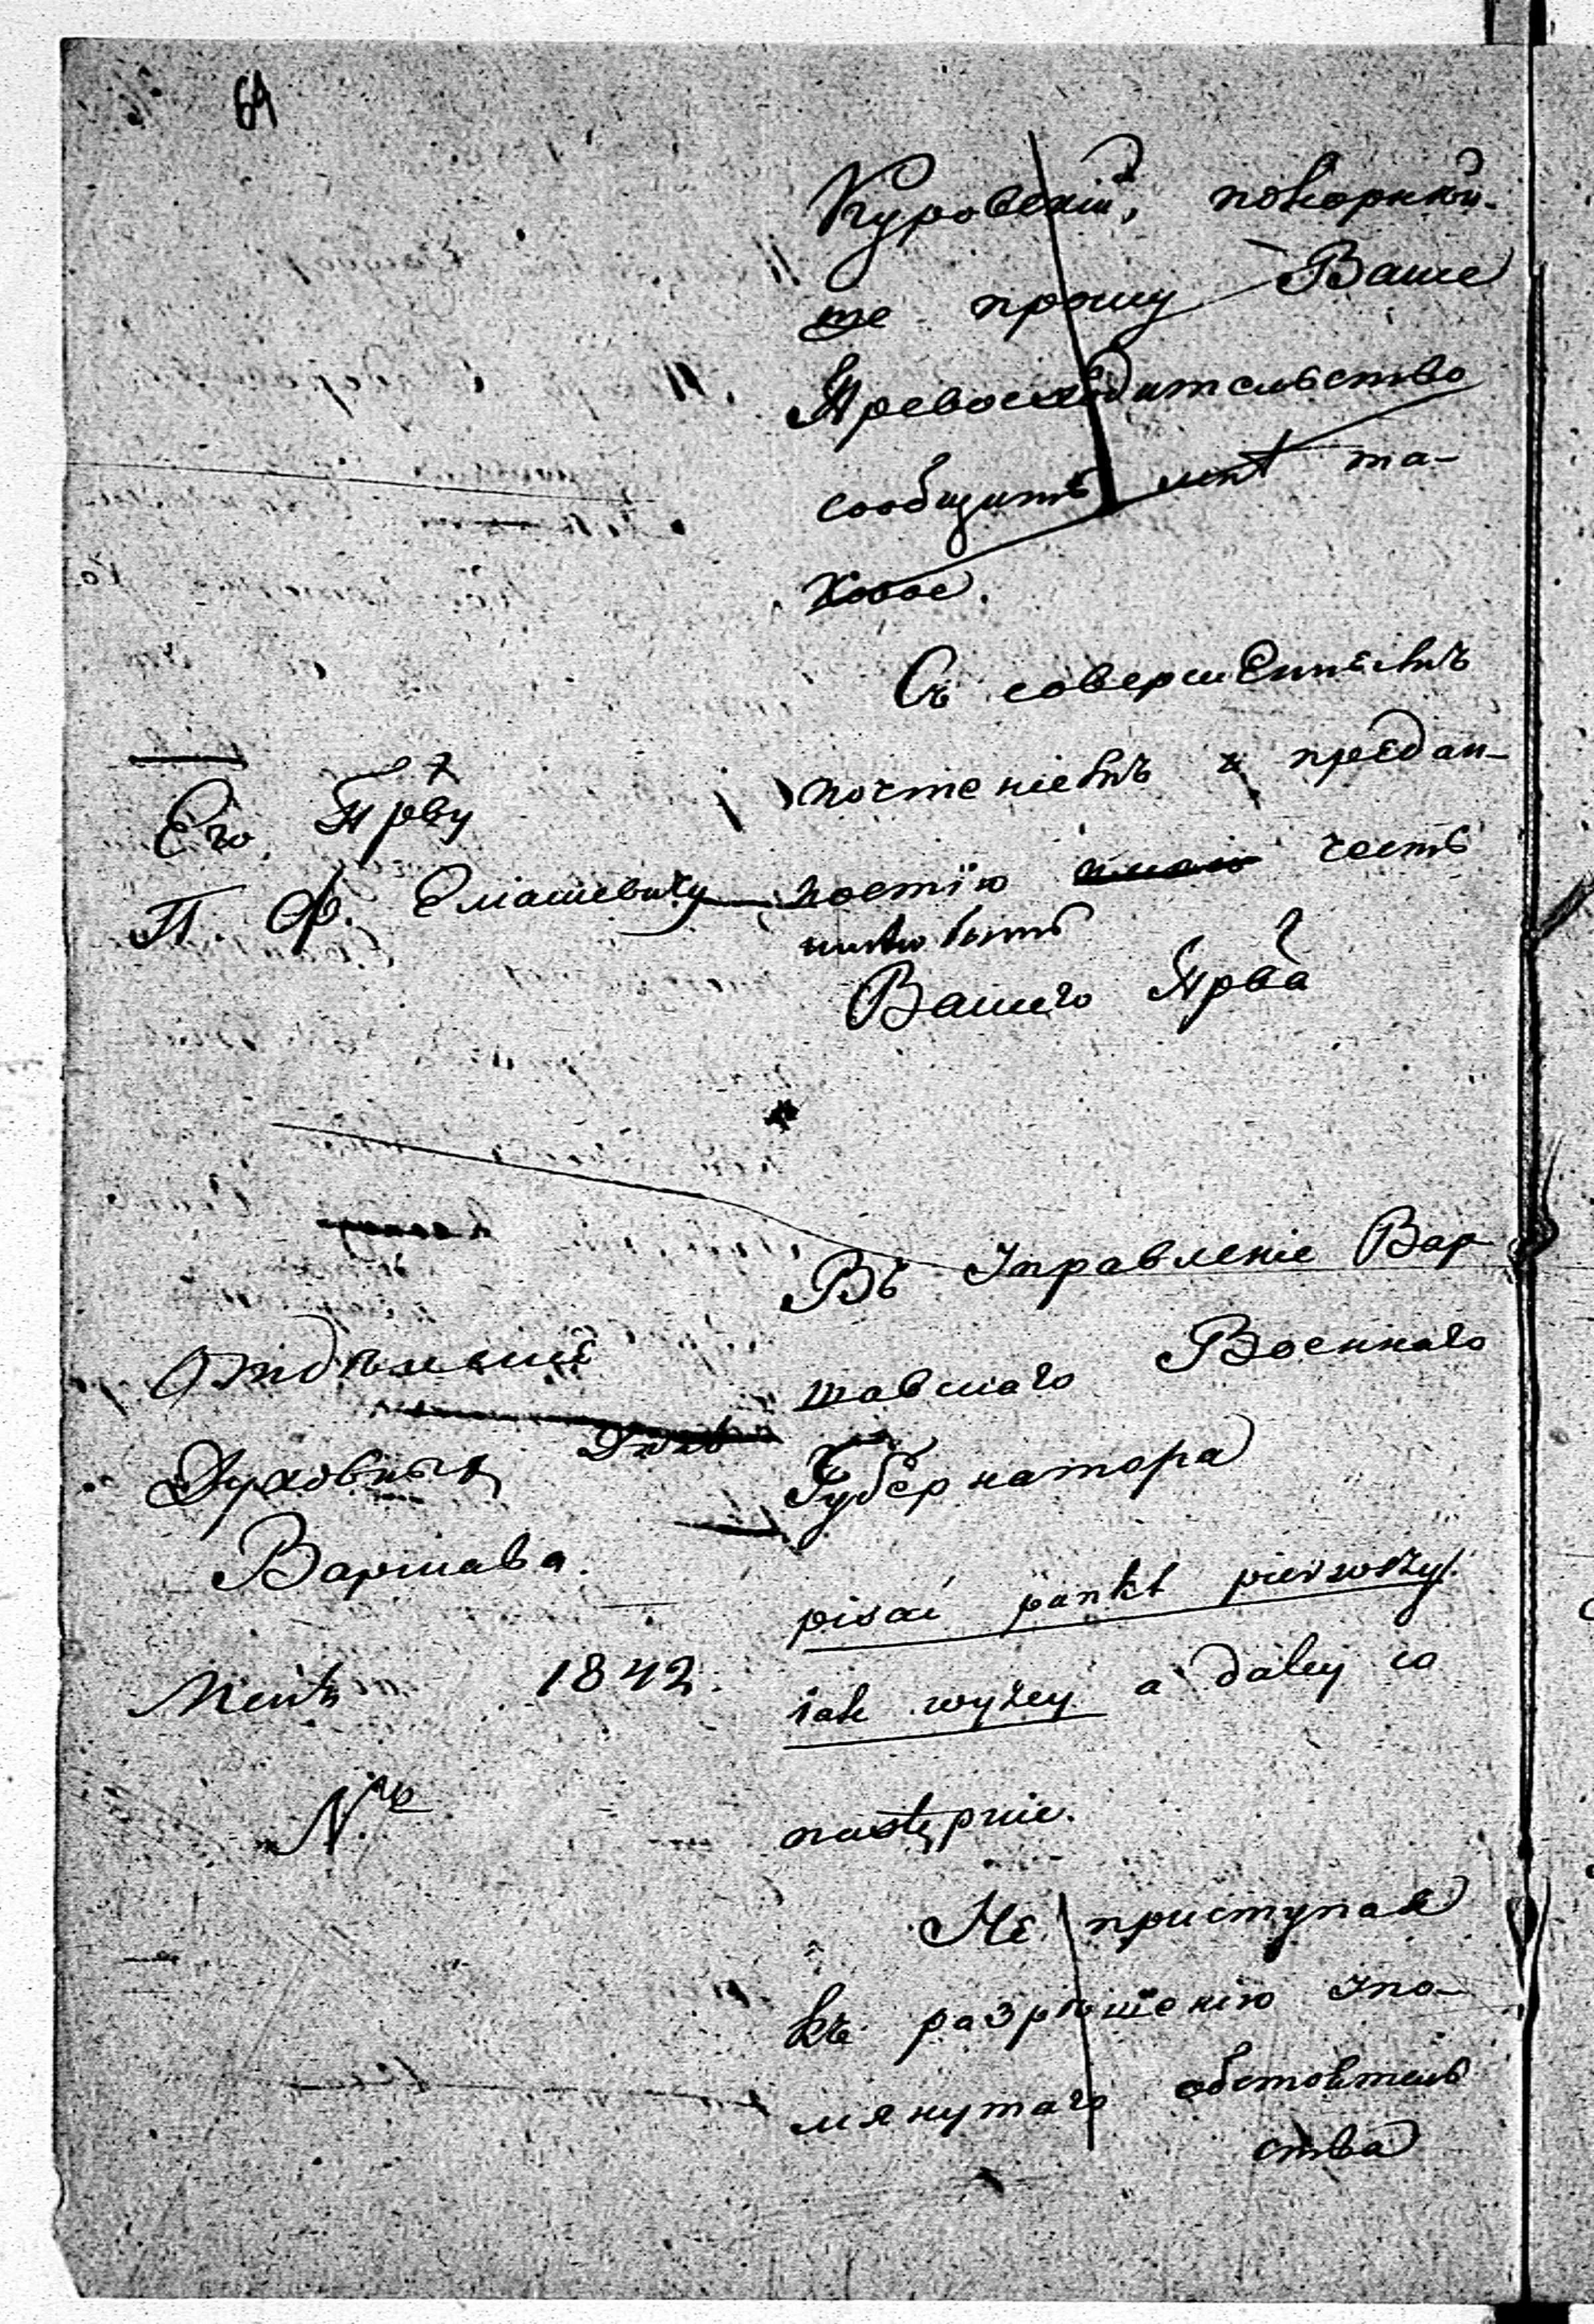 69
Куровскій, покорнѣй-
ше прошу Ваше
Превосходительство
сообщить мнѣ та-
ковое.
Съ совершеннымъ
почтеніемъ и предан-
ностію честь
имѣю быть
Вашего Прва
Его Прву
П. Ф. Еліашевичу
Въ Управленіе Вар
шавскаго Военнаго
Губернатора
Отдѣленіе
Духовныхъ Дѣлъ
Варшава.
1842.
Nro
pisać punkt pierwszy
iak wyżey a daley co
następuie.
Не приступая
къ разрѣшенію упо-
мянутаго обстоятель
ства